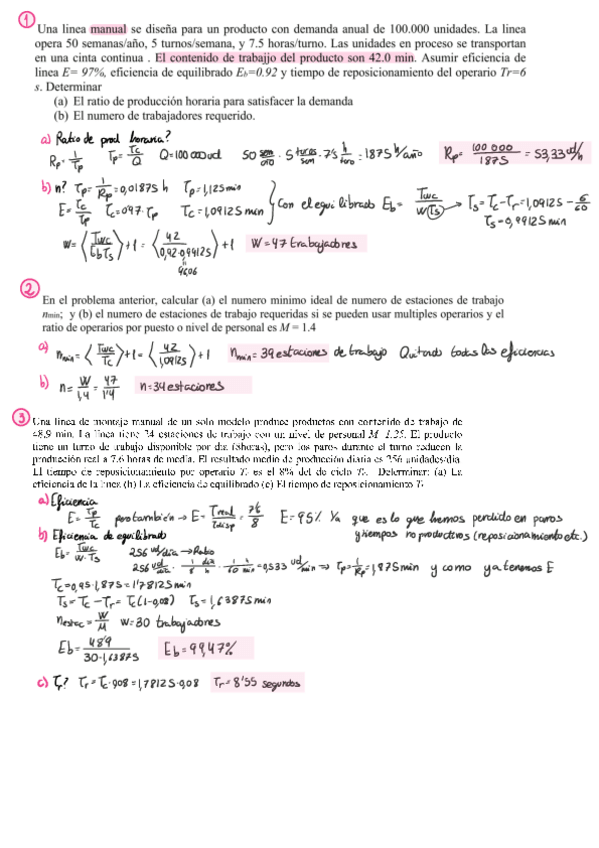 1 Una linea manual se diseña para un producto con demanda anual de 100.000 unidades. La linea
opera 50 semanas/año, 5 turnos/semana, y 7.5 horas/turno. Las unidades en proceso se transportan
en una cinta continua . El contenido de trabajjo del producto son 42.0 min. Asumir eficiencia de
linea E= 97%, eficiencia de equilibrado Eb=0.92 y tiempo de reposicionamiento del operario Tr=6
s. Determinar
(a) El ratio de producción horaria para satisfacer la demanda
(b) El numero de trabajadores requerido.
a) Ratio de prod horaria?
Rp = 1/Tp Tp = Tc/Q Q = 100 000 ud 50 sem/año · 5 turnos/sem · 7'5 h/turno = 1875 h/año Rp = 100 000/1875 = 53,33 ud/h
b) n? Tp = 1/Rp = 0,01875 h Tp = 1,125 min
E = Tc/Tp Tc = 0'97 · Tp Tc = 1,09125 min } Con el equilibrado Eb = Twc/w(Ts) → Ts = Tc - Tr = 1,09125 - 6/60
Ts = 0,99125 min
w = ⟨Twc/EbTs⟩ + 1 = ⟨42/0,92·0,99125⟩ + 1 W = 47 trabajadores
2 En el problema anterior, calcular (a) el numero minimo ideal de numero de estaciones de trabajo
nmin; y (b) el numero de estaciones de trabajo requeridas si se pueden usar multiples operarios y el
ratio de operarios por puesto o nivel de personal es M = 1.4
a) nmin = ⟨Twc/Tc⟩ + 1 = ⟨42/1,09125⟩ + 1 nmin = 39 estaciones de trabajo Quitando todas las eficiencias
b) n = W/1,4 = 47/1'4 n = 34 estaciones
3 Una linea de montaje manual de un solo modelo produce productos con contenido de trabajo de
48.9 min. La linea tiene 24 estaciones de trabajo con un nivel de personal M=1.25. El producto
tiene un turno de trabajo disponible por dia (8horas), pero los paros durante el turno reducen la
producción real a 7.6 horas de media. El resultado medio de producción diaria es 256 unidades/dia.
El tiempo de reposicionamiento por operario Tr es el 8% del de ciclo Tc. Determinar: (a) La
eficiencia de la linea (b) La eficiencia de equilibrado (c) El tiempo de reposicionamiento Tr
a) Eficiencia
E = Tp/Tc pero también → E = Treal/Tdisp = 7'6/8 E = 95% Ya que es lo que hemos perdido en paros
y tiempos no productivos (reposicionamiento etc.)
b) Eficiencia de equilibrado
Eb = Twc/W·Ts 256 ud/día → Ratio
256 ud/día · 1/8 día/h · 1/60 h/min = 0,533 ud/min → Tp = 1/Rp = 1,875 min y como ya tenemos E
Tc = 0,95 · 1,875 = 1'78125 min
Ts = Tc - Tr = Tc(1-0,08) Ts = 1,63875 min
nestac = W/M W = 30 trabajadores
Eb = 48'9/30·1,63875 Eb = 99,47%
c) Tr? Tr = Tc · 0'08 = 1,78125 · 0,08 Tr = 8'55 segundos